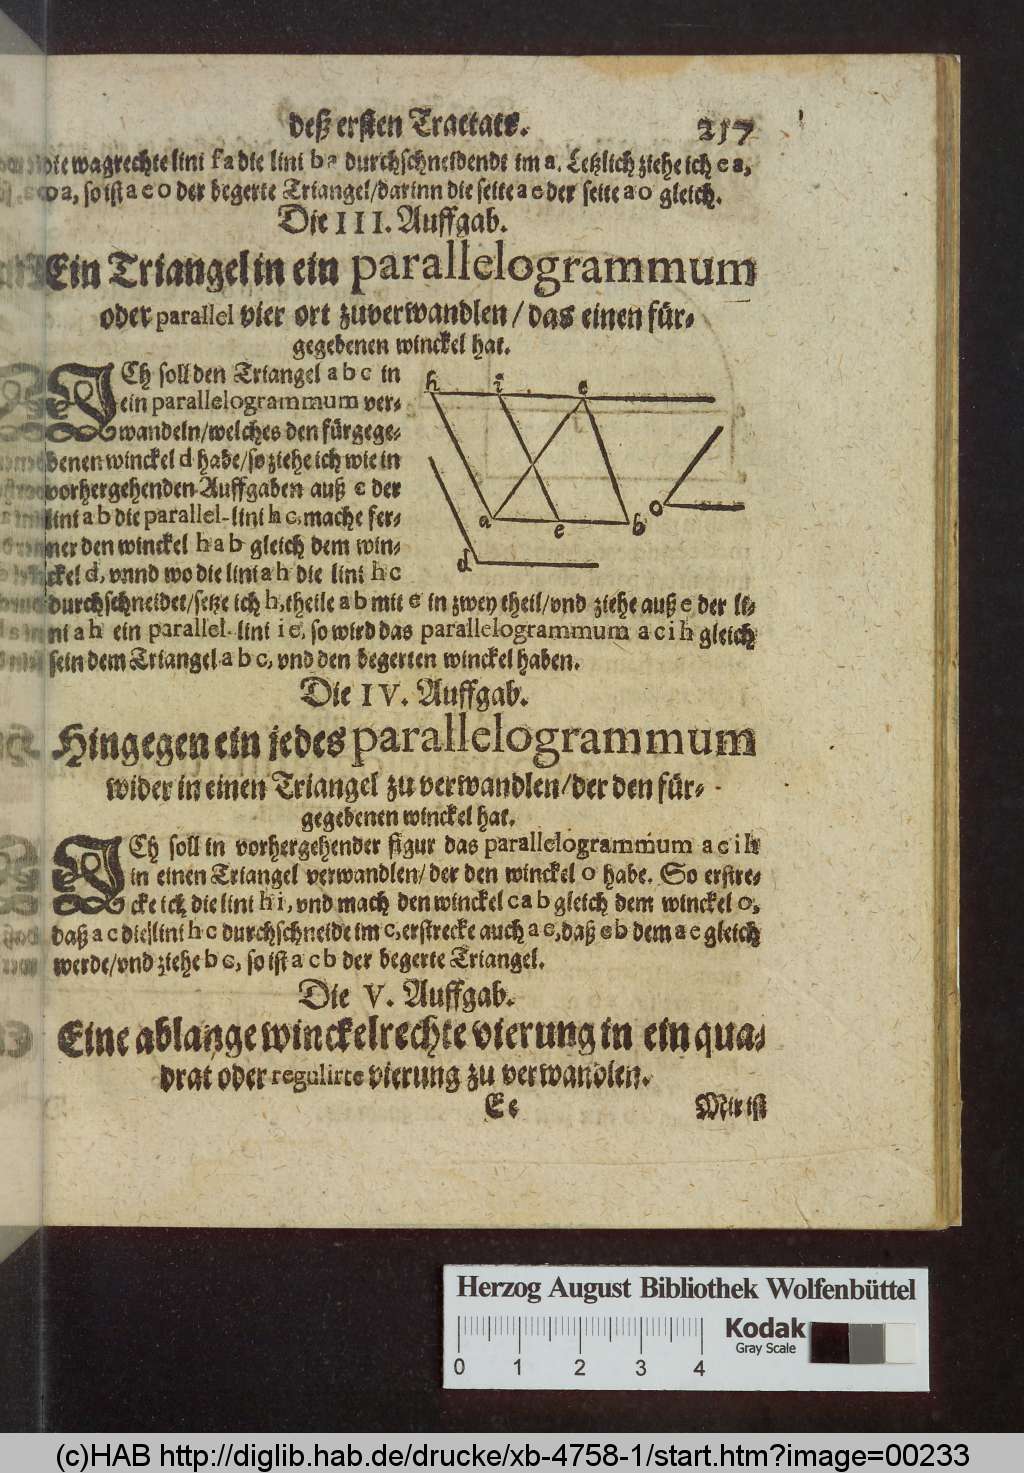 deß ersten Tractats. 257
die wagrechte lini f a die lini b a durchschneidendt im a. Letzlich ziehe ich e a,
o a, so ist a e o der begerte Triangel/darinn die seite a e der seite a o gleich.
Die III. Auffgab.
Ein Triangel in ein parallelogrammum
oder parallel vier ort zuverwandlen / das einen für-
gegebenen winckel hat.
ICh soll den Triangel a b c in
ein parallelogrammum ver-
wandeln/welches den fürgege-
benen winckel d habe/so ziehe ich wie in
vorhergehenden Auffgaben auß c der
lini a b die parallel-lini h c, mache fer-
ner den winckel h a b gleich dem win-
ckel d, vnnd wo die lini a h die lini h c
durchschneidet/setze ich h, theile a b mit e in zwey theil/vnd ziehe auß e der li-
ni a h ein parallel-lini i e, so wird das parallelogrammum a e i h gleich
sein dem Triangel a b c, vnd den begerten winckel haben.
h i c
a e b o
d
Die IV. Auffgab.
Hingegen ein jedes parallelogrammum
wider in einen Triangel zu verwandlen/der den für-
gegebenen winckel hat.
ICh soll in vorhergehender figur das parallelogrammum a e i h
in einen Triangel verwandlen/der den winckel o habe. So erstre-
cke ich die lini h i, vnd mach den winckel c a b gleich dem winckel o,
daß a c die lini h c durchschneide im c, erstrecke auch a e, daß e b dem a e gleich
werde/vnd ziehe b c, so ist a c b der begerte Triangel.
Die V. Auffgab.
Eine ablange winckelrechte vierung in ein qua-
drat oder regulirte vierung zu verwandlen.
E e Mir ist
Herzog August Bibliothek Wolfenbüttel
0 1 2 3 4
Kodak
Gray Scale
(c)HAB http://diglib.hab.de/drucke/xb-4758-1/start.htm?image=00233